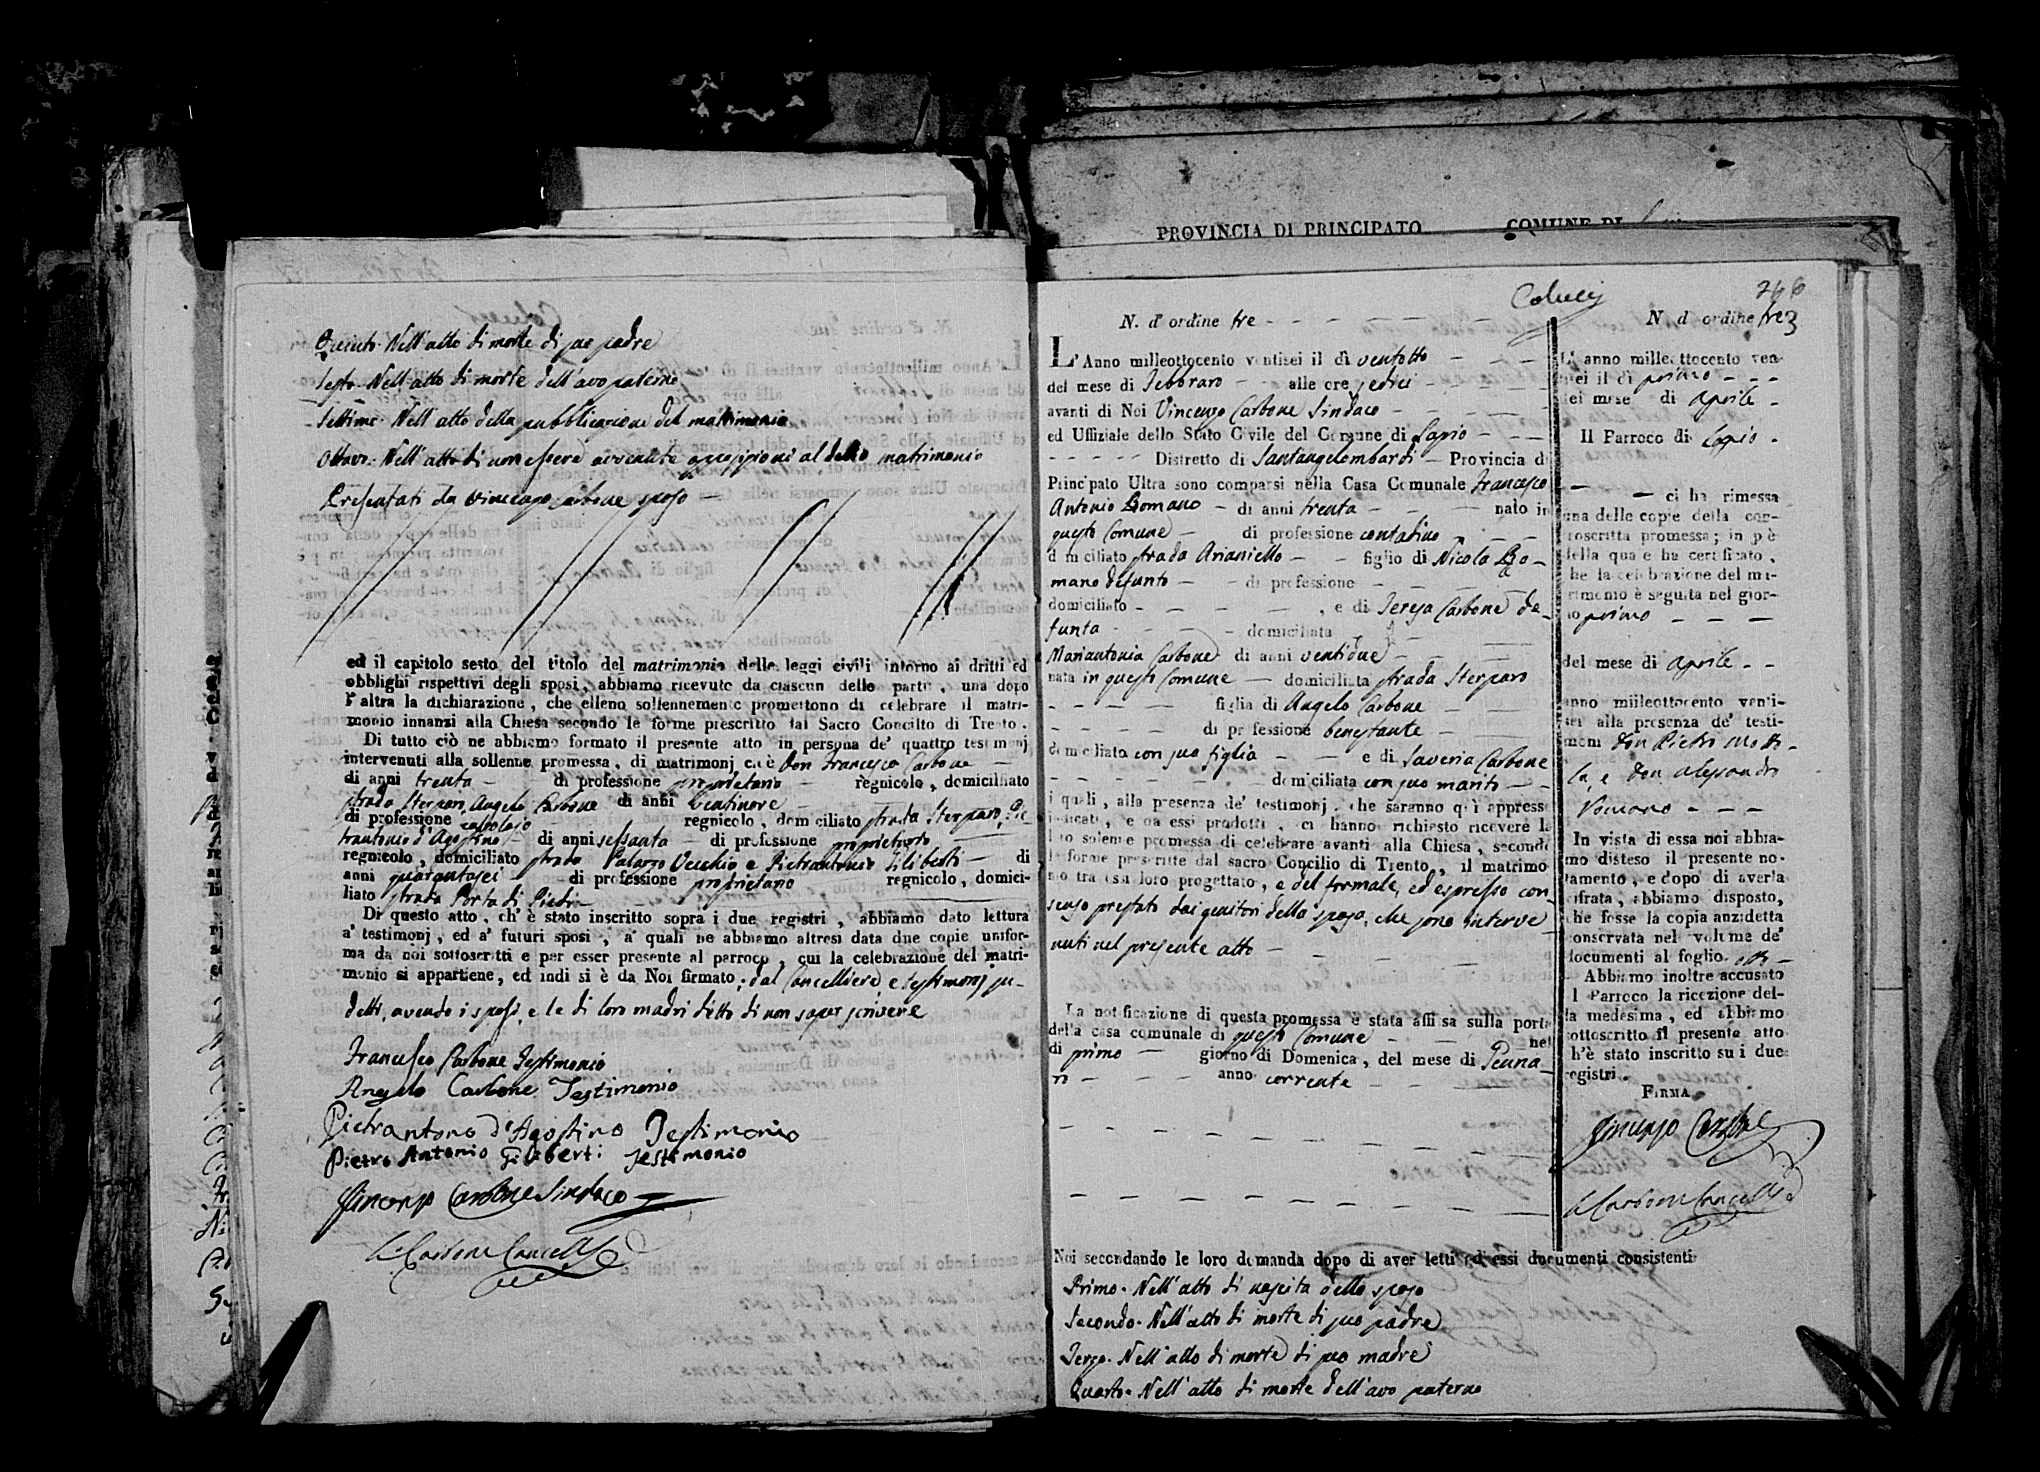 Quinto. Nell'atto di morte di suo padre
Sesto. Nell'atto di morte dell'avo paterno
Settimo. Nell'atto della pubblicazione del matrimonio
Ottavo. Nell'atto di non essere avvenute opposizioni al detto matrimonio
Presentati da Vincenzo Carbone sposo —
ed il capitolo sesto del titolo del matrimonio delle leggi civili intorno ai dritti ed
obblighi rispettivi degli sposi, abbiamo ricevuto da ciascun delle parti, una dopo
l'altra la dichiarazione, che elleno sollennemente promettono di celebrare il matri-
monio innanzi alla Chiesa secondo le forme prescritto dal Sacro Concilto di Trento.
Di tutto ciò ne abbiamo formato il presente atto in persona de' quattro testimonj
intervenuti alla sollenne promessa, di matrimonj cioè Don Francesco Carbone
di anni trenta — di professione proprietario — regnicolo, domiciliato
strada Sterparo, Angelo Carbone di anni ventinove —
di professione regnicolo, domiciliato strada Sterparo, Pie-
trantonio d'Agostino — di anni sessanta — di professione proprietario
regnicolo, domiciliato strada Palazzo Vecchio e Pietrantonio Filiberti — di
anni quarantasei — di professione proprietario regnicolo, domici-
liato strada Porta di Piedi
Di questo atto, ch'è stato inscritto sopra i due registri, abbiamo dato lettura
a' testimonj, ed a' futuri sposi, a' quali ne abbiamo altresì data due copie unifor-
ma da noi sottoscritti e per esser presente al parroco, cui la celebrazione del matri-
monio si appartiene, ed indi si è da Noi firmato, dal Cancelliere e testimonj su-
detti, avendo i sposi, e le di loro madri detto di non saper scrivere
Francesco Carbone Testimonio
Angelo Carbone Testimonio
Pietrantonio d'Agostino Testimonio
Pietro Antonio Filiberti Testimonio
Vincenzo Carbone Sindaco
Carbone Cancelle
PROVINCIA DI PRINCIPATO COMUNE DI
266
N. d'ordine tre
L'Anno milleottocento ventisei il dì ventotto
del mese di Febbraro — alle ore sedici
avanti di Noi Vincenzo Carbone Sindaco
ed Uffiziale dello Stato Civile del Comune di Lapio
Distretto di Santangelombardi — Provincia di
Principato Ultra sono comparsi nella Casa Comunale Francesco
Antonio Romano — di anni trenta — nato in
questo Comune — di professione contadino
domiciliato strada Arianiello — figlio di Nicola Ro-
mano defunto — di professione
domiciliato — , e di Teresa Carbone de-
funta — domiciliata
Mariantonia Carbone di anni ventidue
nata in questo Comune — domiciliata strada Sterparo
figlia di Angelo Carbone
di professione benestante
domiciliato con sua figlia — e di Saveria Carbone
domiciliata con suo marito
i quali, alla presenza de' testimonj, che saranno quì appresso
indicati, e da essi prodotti, ci hanno richiesto ricevere la
loro solenne promessa di celebrare avanti alla Chiesa, secondo
le forme prescritte dal sacro Concilio di Trento, il matrimo-
nio tra essi loro progettato, e del formale, ed espresso con-
senso prestato dai genitori dello sposo, che sono interve-
nuti nel presente atto —
La notificazione di questa promessa è stata affissa sulla porta
della casa comunale di questo Comune — nel
dì primo — giorno di Domenica, del mese di Genna-
ro — anno corrente
Noi secondando le loro domanda dopo di aver letti ed essi documenti consistenti
Primo. Nell'atto di nascita dello sposo
Secondo. Nell'atto di morte di suo padre
Terzo. Nell'atto di morte di sua madre
Quarto. Nell'atto di morte dell'avo paterno
N. d'ordine tre 3
L'anno milleottocento ven-
tisei il dì primo
del mese di Aprile
Il Parroco di Lapio
— ci ha rimessa
una delle copie della con-
troscritta promessa; in piè
della quale ha certificato,
che la celebrazione del ma-
trimonio è seguita nel gior-
no primo
del mese di Aprile
anno milleottocento venti-
sei alla presenza de' testi-
moni Don Pietro
e Don Alessandro
Romano
In vista di essa noi abbia-
mo disteso il presente no-
tamento, e dopo di averla
cifrata, abbiamo disposto,
che fosse la copia anzidetta
conservata nel volume de'
documenti al foglio
Abbiamo inoltre accusato
al Parroco la ricezione del-
la medesima, ed abbiamo
sottoscritto il presente atto
ch'è stato inscritto su i due
registri.
FIRMA
Vincenzo Carbone
Carbone Cancelle